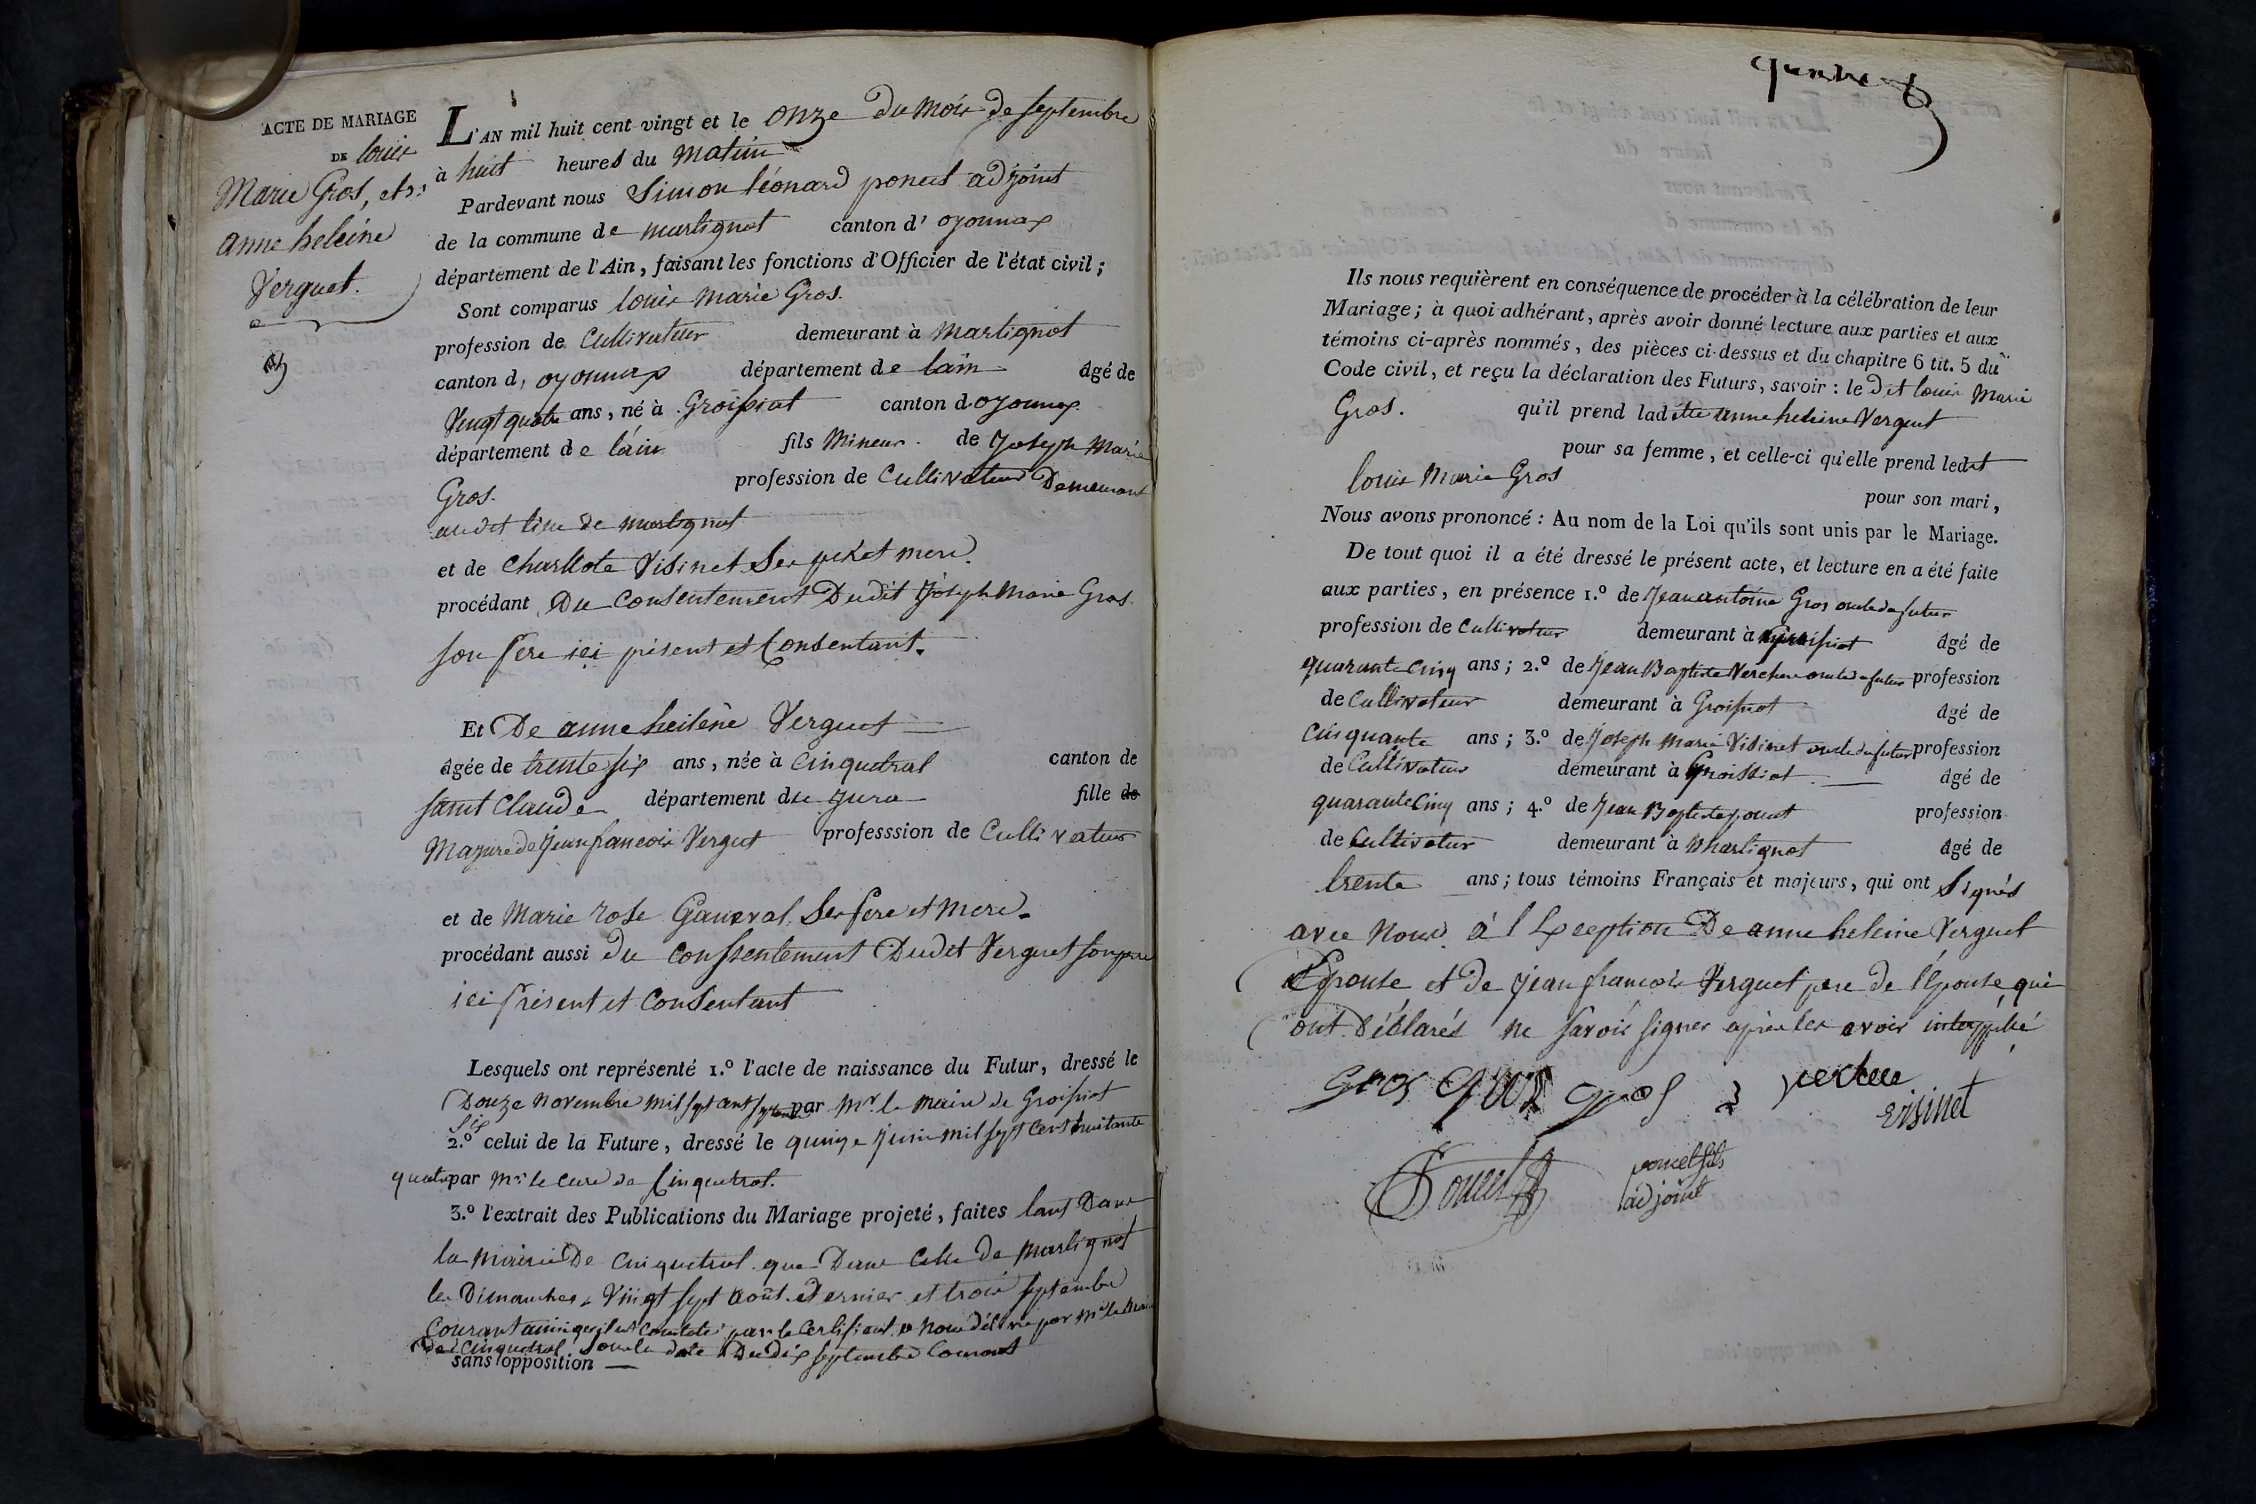 ACTE DE MARIAGE
DE louis
Marie Gros, et d:
anne heleine
Verguet.
L'AN mil huit cent vingt et le onze du mois de septembre
à huit heures du matin
Pardevant nous Simon léonard poncet adjoint
de la commune de martignat canton d' oyonnax
département de l'Ain, faisant les fonctions d'Officier de l'état civil;
Sont comparus louis marie Gros.
profession de Cultivateur demeurant à Martignat
canton d, oyonnax département de lain âgé de
Vingt quatre ans, né à Groissiat canton d oyonnax
département de láin fils Mineur. de Joseph Marie
Gros. profession de Cultivateur Demeurant
audit lieu de martignat
et de Charllote Visinet Ses per et mere.
procédant Du Consentement Dudit Joseph Marie Gros
son pere ici présent et Consentant.
Et De anne heilène Verguet
âgée de trente six ans, née à Cinquetral canton de
saint Claude département du Jura fille de
Majure de Jean francois Verguet professsion de Cultivateur
et de Marie rose Ganeval Ses pere et mere.
procédant aussi du consentement Dudit Verguet son pere
ici présent et Consentant
Lesquels ont représenté 1.º l'acte de naissance du Futur, dressé le
Douze novembre mil sept cent par Mr. le maire de Groissiat
Six
2.º celui de la Future, dressé le quinze Juin mil sept cent huitante
quatre par Mr le curé de Cinquetral.
3.º l'extrait des Publications du Mariage projeté, faites tant Dans
la Mairie De Cinquetral que Dans Celle de Martignat
les Dimanches Vingt sept août dernier et trois septembre
Courant ainsi qu'il est Constaté par le Certificat a nous délivré par Mr le Maire
De Cinquetral sous la date Du Dix septembre Courant
sans opposition
Ils nous requièrent en conséquence de procéder à la célébration de leur
Mariage; à quoi adhérant, après avoir donné lecture aux parties et aux
témoins ci-après nommés, des pièces ci-dessus et du chapitre 6 tit. 5 du
Code civil, et reçu la déclaration des Futurs, savoir: le dit louis Marie
Gros. qu'il prend ladite anne heleine Verguet
pour sa femme, et celle-ci qu'elle prend ledit
louis Marie Gros pour son mari,
Nous avons prononcé: Au nom de la Loi qu'ils sont unis par le Mariage.
De tout quoi il a été dressé le présent acte, et lecture en a été faite
aux parties, en présence 1.º de Jean antoine Gros oncle du futur
profession de Cultivateur demeurant à Groissiat âgé de
quarante Cinq ans; 2.º de Jean Baptiste Verchere oncle du futur profession
de Cultivateur demeurant à Groissiat âgé de
Cinquante ans; 3.º de Joseph Marie Visinet oncle du futur profession
de Cultivateur demeurant à Groissiat âgé de
quarante Cinq ans; 4.º de Jean Baptiste poncet profession
de Cultivateur demeurant à Martignat âgé de
trente ans; tous témoins Français et majeurs, qui ont Signés
avec Nous à l Exeption De anne heleine Verguet
Epouse et de Jean francois Verguet pere de l'épouse qui
ont Déclarés ne savoir signer après les avoir interpellé
Gros gros gros
visinet
Poncet
poncet fils
adjoint